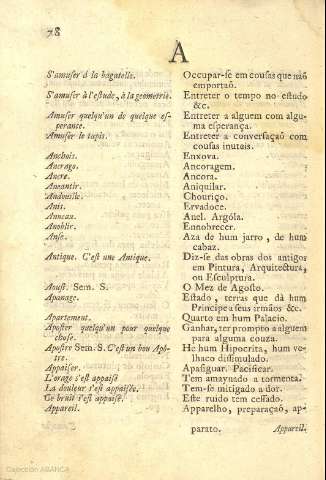 78
A
S'amuser á la bagatelle. Occupar-se em cousas que naõ
emportaõ.
S'amuser à l'estude, à la geometrie. Entreter o tempo no estudo
&c.
Amuser quelqu'un de quelque es- Entreter a alguem com algu-
perante. ma esperança.
Amuser le tapis. Entreter a conversaçaõ com
cousas inuteis.
Anchois. Enxova.
Ancrage. Ancoragem.
Ancre. Ancora.
Aneantir. Aniquilar.
Andouille. Chouriço.
Anis. Ervadoce.
Anneau. Anel. Argóla.
Anoblir. Ennobrecer.
Anse. Aza de hum jarro, de hum
cabaz.
Antique. C'est une Antique. Diz-se das obras dos antigos
em Pintura, Arquitectura,
ou Esculptura.
Aoust. Sem. S. O Mez de Agosto.
Apanage. Estado, terras que dà hum
Principe a seus irmãos &c.
Apartement. Quarto em hum Palacio.
Aposter quelqu'un pour quelque Ganhar, ter prompto a alguem
chose. para alguma couza.
Apostre Sem. S. C'est un bou Apô- He hum Hipocrita, hum ve-
tre. lhaco dissimulado.
Appaiser. Apasiguar. Pacificar.
L'orage s'est appaisé Tem amaynado a tormenta.
La douleur s'est appaisée. Tem-se mitigado a dor.
Ce bruit s'est appaisé. Este ruido tem cessado.
Appareil. Apparelho, preparaçaõ, ap-
parato. Appareil.
Colección ABANCA